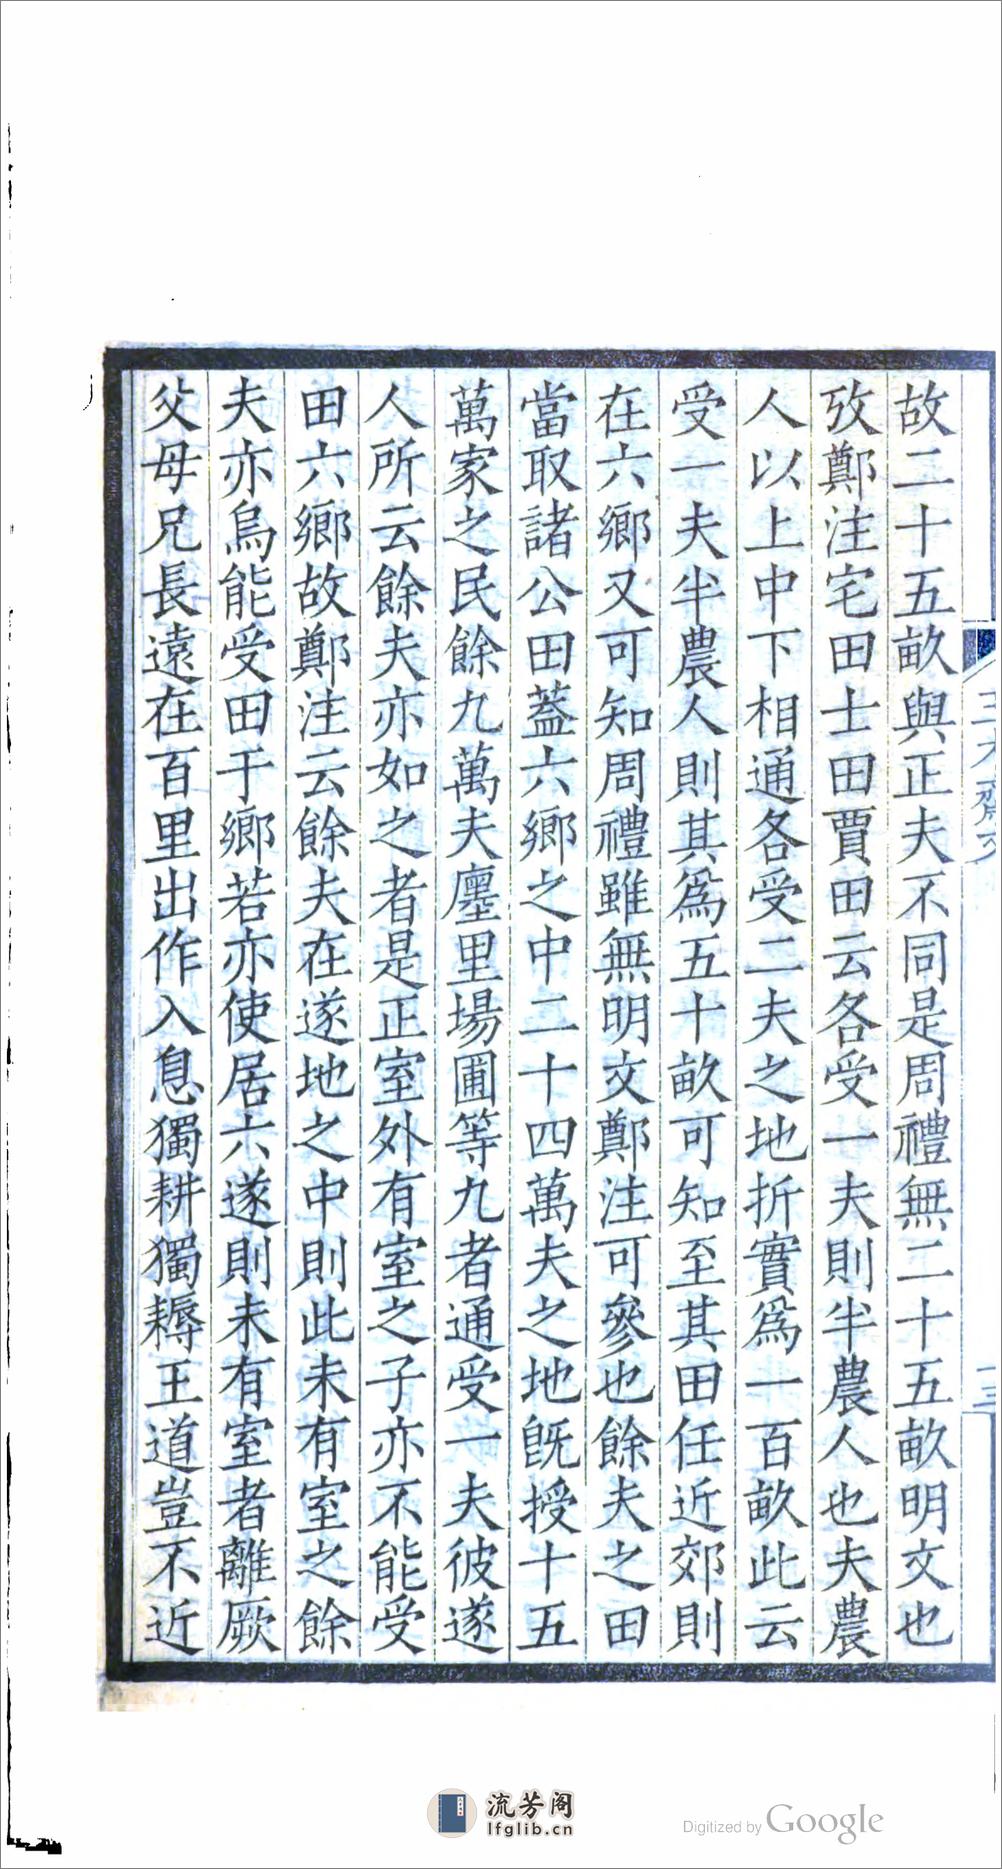 故二十五畝與正夫不同是周禮無二十五畝明文也
攷鄭注宅田士田賈田云各受一夫則半農人也夫農
人以上中下相通各受二夫之地折實爲一百畝此云
受一夫半農人則其爲五十畝可知至其田任近郊則
在六鄉又可知周禮雖無明文鄭注可參也餘夫之田
當取諸公田蓋六鄉之中二十四萬夫之地旣授十五
萬家之民餘九萬夫廛里場圃等九者通受一夫彼遂
人所云餘夫亦如之者是正室外有室之子亦不能受
田六鄉故鄭注云餘夫在遂地之中則此未有室之餘
夫亦烏能受田于鄉若亦使居六遂則未有室者離厥
父母兄長遠在百里出作入息獨耕獨耨王道豈不近
流芳阁
lfglib.cn
Digitized by Google